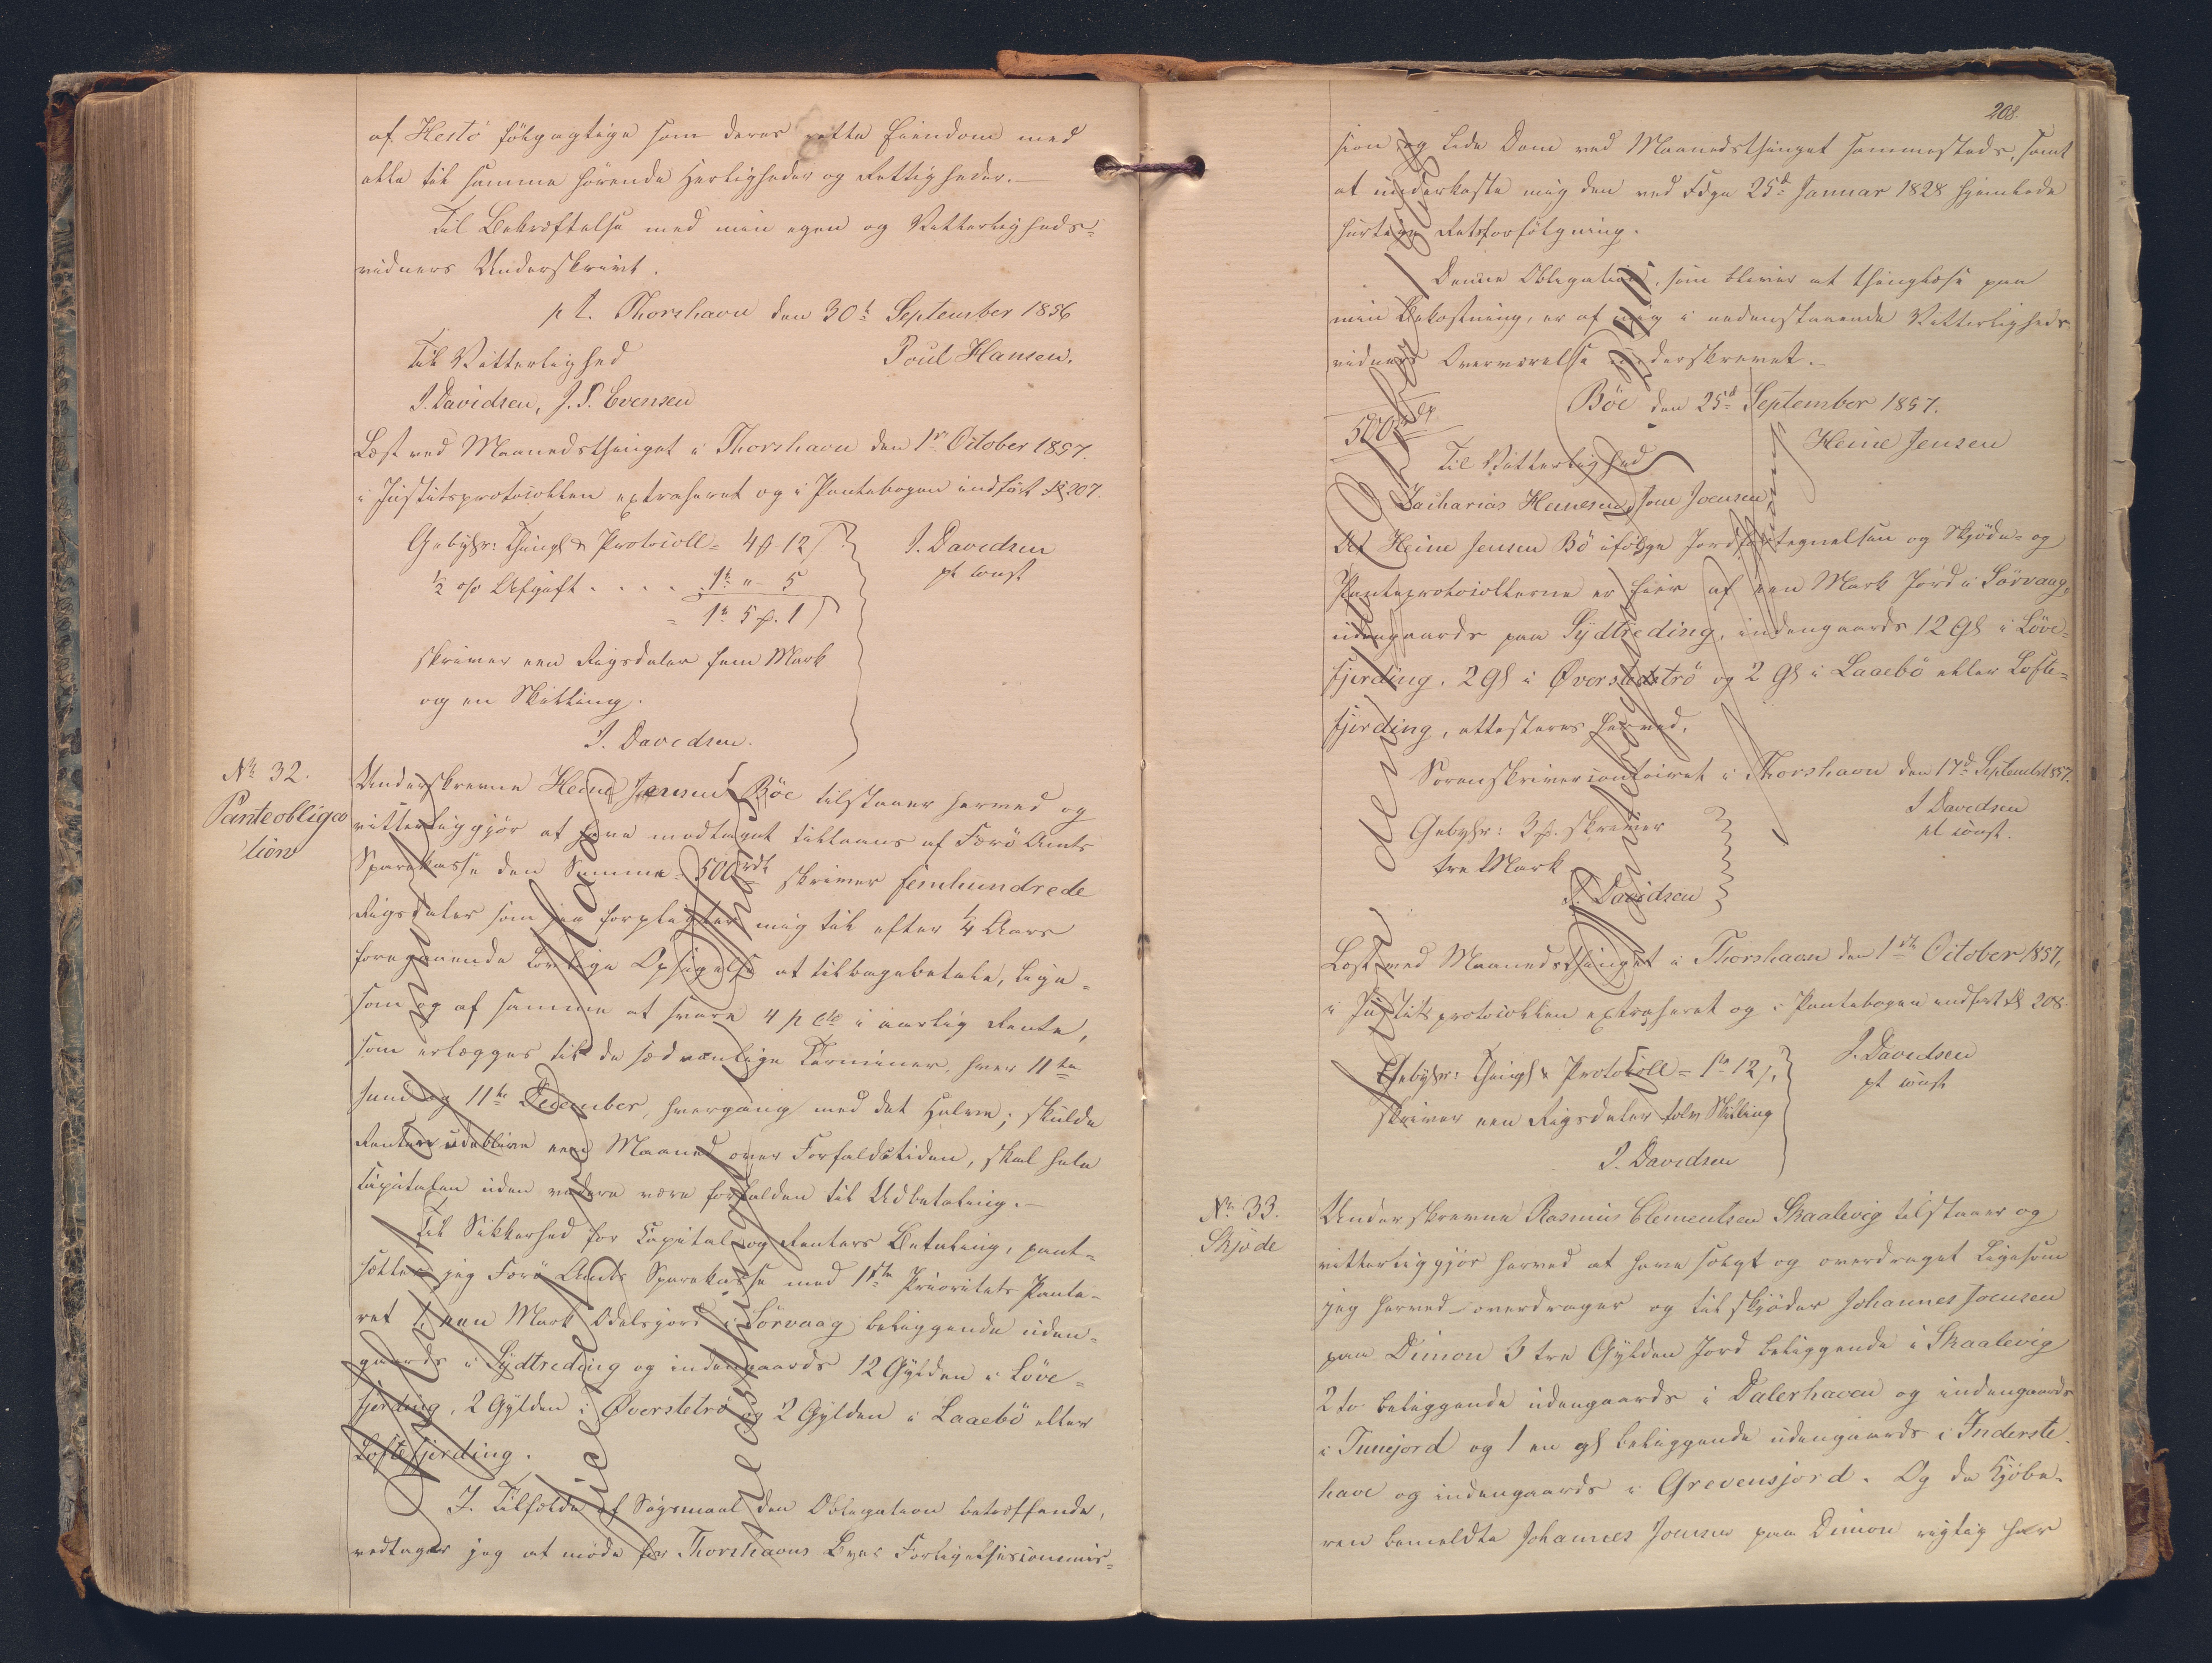 af Hestø følgagtige som deres rette Eiendom med
alle til samme hørende Herligheder og Rettigheder. —
Til Bekræftelse med min egen og Vitterligheds-
vidners Underskrivt.
p t. Thorshavn den 30t September 1856
Til Vitterlighed
Poul Hansen.
J. Davidsen, J. P. Evensen
Læst ved Maanedsthinget i Thorshavn den 1ste October 1857.
i Justitsprotocollen extraheret og i Pantebogen indført fol 207.
Gebyhr: Thingl & Protocoll = 4 - 12
½ o/o Afgift . . . . 1 " - 5
= 1 5 . 1
J. Davidsen
pt const
skriver een Rigsdaler fem Mark
og en Skilling.
J. Davidsen.
No 32.
Panteobliga
tion
Underskrevne Heine Jensen Böe tilstaaer herved og
vitterliggjør at have modtaget tillaans af Færö Amts
Sparekasse den Summa 500 rdl skriver femhundrede
Rigsdaler som jeg forpligter mig til efter ¼ Aars
foregaaende lovlige Opsigelse at tilbagebetale, lige-
som og af samme at svare 4 p Cto i aarlig Rente,
som erlægges til de sædvanlige Terminer, hver 11te
Juni og 11te December, hvergang med det Halve; skulde
Renten udeblive een Maaned over Forfaldstiden, skal hele
Capitalen uden videre være forfalden til Udbetaling. —
Til Sikkerhed for Capital og Renters Betaling, pant-
sætter jeg Færö Amts Sparekasse med 1ste Prioritets Pante-
ret 1, een Mark Odelsjord i Sörvaag beliggende uden-
gaards i Sydtreding og indengaards 12 Gylden i Löve-
fjerding, 2 Gylden i Øverstetrö og 2 Gylden i Laaebö eller
Loftefjerding.
I Tilfælde af Søgsmaal den Obligation betræffende,
vedtager jeg at møde for Thorshavns Byes Forligelsescommis-
208.
sion og lide Dom ved Maanedsthinget sammesteds, samt
at underkaste mig den ved Fdgn 25d Januar 1828 hjemlede
hurtige Retsforfølgning.
Denne Obligation, som bliver at thinglæse paa
min Bekostning, er af mig i nedenstaaende Vitterligheds-
vidners Overværelse underskrevet.
Böe den 25d September 1857.
500
Heine Jensen
Til Vitterlighed
Zacharias Heinesen, Joen Joensen
At Heine Jensen Bö ifølge Jordfortegnelsen og Skjøde- og
Panteprotocollerne er Eier af een Mark Jord i Sörvaag,
udengaards paa Sydtreding, indengaards 12 Gl i Löve-
fjerding, 2 Gl i Øverstetrö og 2 Gl i Laaebö eller Lofte-
fjerding, attesteres herved.
Sorenskrivercontoiret i Thorshavn den 17d September 1857.
J Davidsen
pt const.
Gebyhr: 3 . skriver
tre Mark
J. Davidsen
Læst ved Maanedsthinget i Thorshavn den 1ste October 1857,
i Justitsprotocollen extraheret og i Pantebogen indført fol 208.
J. Davidsen
pt const
Gebyhr: Thingl & Protocoll = 1 12 ,
skriver een Rigsdaler tolv Skilling
J. Davidsen
No 33.
Skjøde
Underskrevne Rasmus Clementsen Skaalevig tilstaaer og
vitterliggjør herved at have solgt og overdraget ligesom
jeg herved overdrager og tilskjøder Johannes Joensen
paa Dimon 3 tre Gylden Jord beliggende i Skaalevig
2 to beliggende udengaards i Dalerhaven og indengaards
i Tunejord og 1 en gl beliggende udengaards i Inderste
have og indengaards i Grevensjord. Og da Kjøbe-
ren bemeldte Johannes Joensen paa Dimon rigtig har